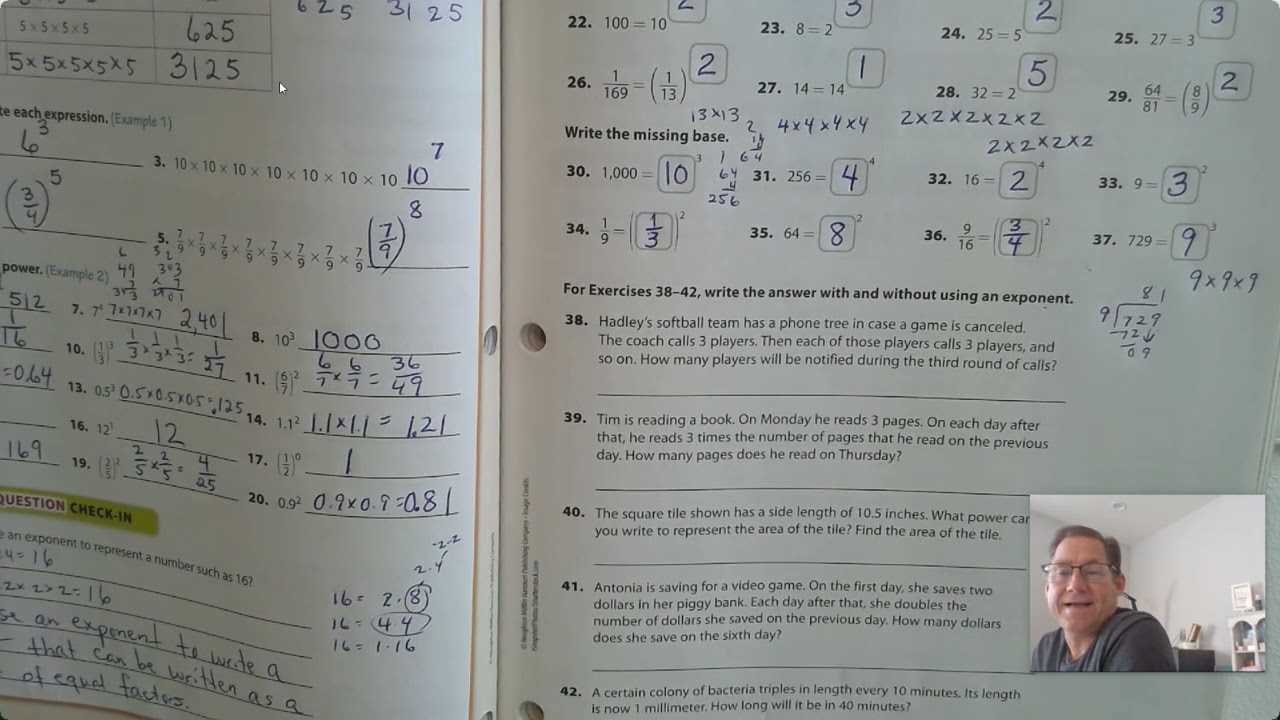 625 3125
5 × 5 × 5 × 5 625
5 × 5 × 5 × 5 × 5 3125
te each expression. (Example 1)
6³
3. 10 × 10 × 10 × 10 × 10 × 10 × 10 10⁷
(3/4)⁵
5. 7/9 × 7/9 × 7/9 × 7/9 × 7/9 × 7/9 × 7/9 × 7/9 (7/9)⁸
power. (Example 2)
49 343
343 2401
512
7. 7⁴ 7×7×7×7 2,401
8. 10³ 1000
1/16
10. (1/3)³ 1/3 × 1/3 × 1/3 = 1/27
11. (6/7)² 6/7 × 6/7 = 36/49
=0.64
13. 0.5³ 0.5×0.5×0.5=.125
14. 1.1² 1.1×1.1 = 1.21
16. 12¹ 12
17. (1/2)⁰ 1
169
19. (2/5)² 2/5 × 2/5 = 4/25
20. 0.9² 0.9×0.9=0.81
QUESTION CHECK-IN
e an exponent to represent a number such as 16?
4=16
2×2×2=16
se an exponent to write a
that can be written as a
of equal factors.
2·2·2
2·4
16 = 2·8
16 = 4·4
16 = 1·16
22. 100 = 10 2
23. 8 = 2 3
24. 25 = 5 2
25. 27 = 3 3
26. 1/169 = (1/13) 2
27. 14 = 14 1
28. 32 = 2 5
29. 64/81 = (8/9) 2
13×13
4×4×4×4
2×2×2×2×2
Write the missing base.
2×2×2×2
16
4
64
64
4
256
30. 1,000 = 10 ³
31. 256 = 4 ⁴
32. 16 = 2 ⁴
33. 9 = 3 ²
34. 1/9 = (1/3)²
35. 64 = 8 ²
36. 9/16 = (3/4)²
37. 729 = 9 ³
9×9×9
81
9)729
72
09
For Exercises 38–42, write the answer with and without using an exponent.
38. Hadley's softball team has a phone tree in case a game is canceled.
The coach calls 3 players. Then each of those players calls 3 players, and
so on. How many players will be notified during the third round of calls?
39. Tim is reading a book. On Monday he reads 3 pages. On each day after
that, he reads 3 times the number of pages that he read on the previous
day. How many pages does he read on Thursday?
40. The square tile shown has a side length of 10.5 inches. What power can
you write to represent the area of the tile? Find the area of the tile.
41. Antonia is saving for a video game. On the first day, she saves two
dollars in her piggy bank. Each day after that, she doubles the
number of dollars she saved on the previous day. How many dollars
does she save on the sixth day?
42. A certain colony of bacteria triples in length every 10 minutes. Its length
is now 1 millimeter. How long will it be in 40 minutes?